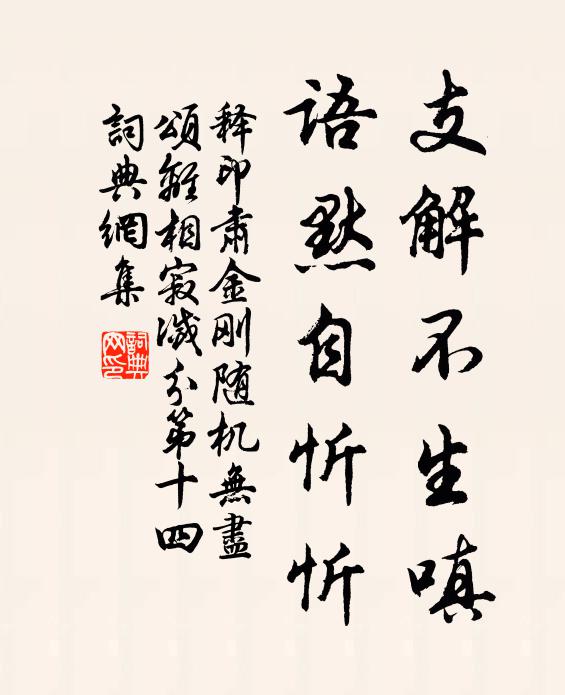 支解不生嗔
語默自忻忻
释印肅金刚随机無盡
頌離相寂滅分第十四
詞典網集
詞典網印